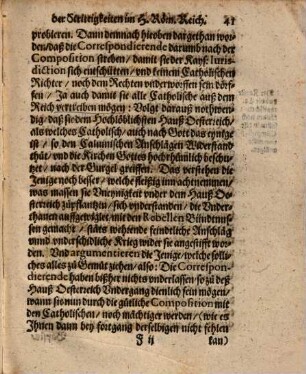 der Strittigkeiten im H. Röm. Reich. 41
probieren. Dann demnach hieoben dargethan wor-
den/daß die Correspondierende darumb nach der
Composition streben/damit sie der Kays: Iuris-
diction sich entschütten/vnd keinem Catholischen
Richter/noch dem Rechten vnderworffen sein dörf-
fen/Ja auch damit sie alle Catholische auß dem
Reich vertreiben mögen: Volgt darauß nothwen-
dig/daß sie dem Hochlöblichsten Hauß Oesterreich/
als welches Catholisch/auch nach Gott das eynige
ist/so den Caluinischen Anschlägen Widerstand
thůt/vnd die Kirchen Gottes hochrhümlich beschu-
tzet/nach der Gurgel greiffen. Das verstehen die
Jenige noch besser/welche fleissig inn acht nemmen/
was massen sie Vneynigkeit vnder dem Hauß Oe-
sterreich zůpflantzen/sich vnderstanden/die Vnder-
thanen auffgewiglet/mit den Rebellen Bündtnuß-
sen gemacht/stäts wehrende feindtliche Anschläg
vnnd vnderschidliche Krieg wider sie angestifft wor-
den. Vnd argumentieren die Jenige/welche solli-
ches alles zu Gemüt ziehen/also: Die Correspon-
dierende haben bißher nichts vnderlassen/so zu deß
Hauß Oesterreich Vndergang dienlich sein mögen/
wann sie nun durch die gütliche Composition mit
den Catholischen/noch mächtiger werden/(wie es
Ihnen dann bey fortgang derselbigen nicht fehlen
F ij kan)